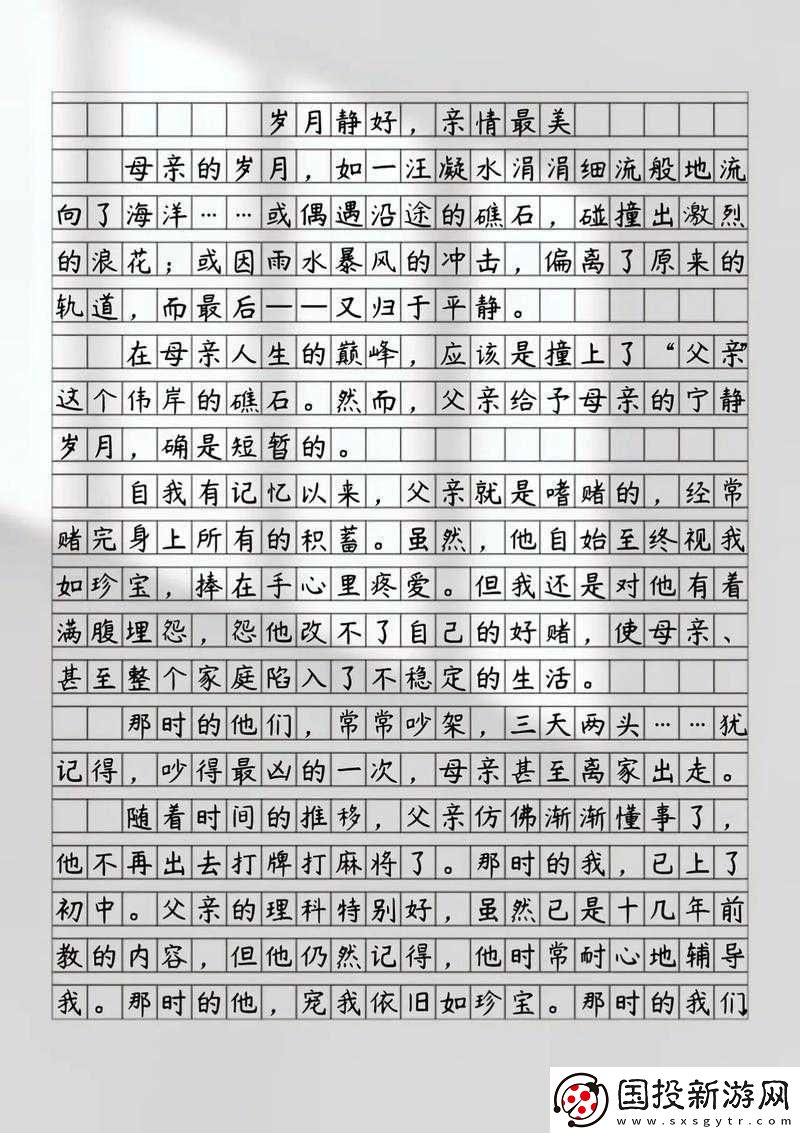 岁月静好，亲情最美
母亲的岁月，如一汪凝水涓涓细流般地流
向了海洋……或偶遇沿途的礁石，碰撞出激烈
的浪花；或因雨水暴风的冲击，偏离了原来的
轨道，而最后——又归于平静。
在母亲人生的巅峰，应该是撞上了“父亲”
这个伟岸的礁石。然而，父亲给予母亲的宁静
岁月，确是短暂的。
自我有记忆以来，父亲就是嗜赌的，经常
赌完身上所有的积蓄。虽然，他自始至终视我
如珍宝，捧在手心里疼爱。但我还是对他有着
满腹埋怨，怨他改不了自己的好赌，使母亲、
甚至整个家庭陷入了不稳定的生活。
那时的他们，常常吵架，三天两头……犹
记得，吵得最凶的一次，母亲甚至离家出走。
随着时间的推移，父亲仿佛渐渐懂事了，
他不再出去打牌打麻将了。那时的我，已上了
初中。父亲的理科特别好，虽然已是十几年前
教的内容，但他仍然记得，他时常耐心地辅导
我。那时的他，宠我依旧如珍宝。那时的我们
国投新游网
www.sxsgytr.com